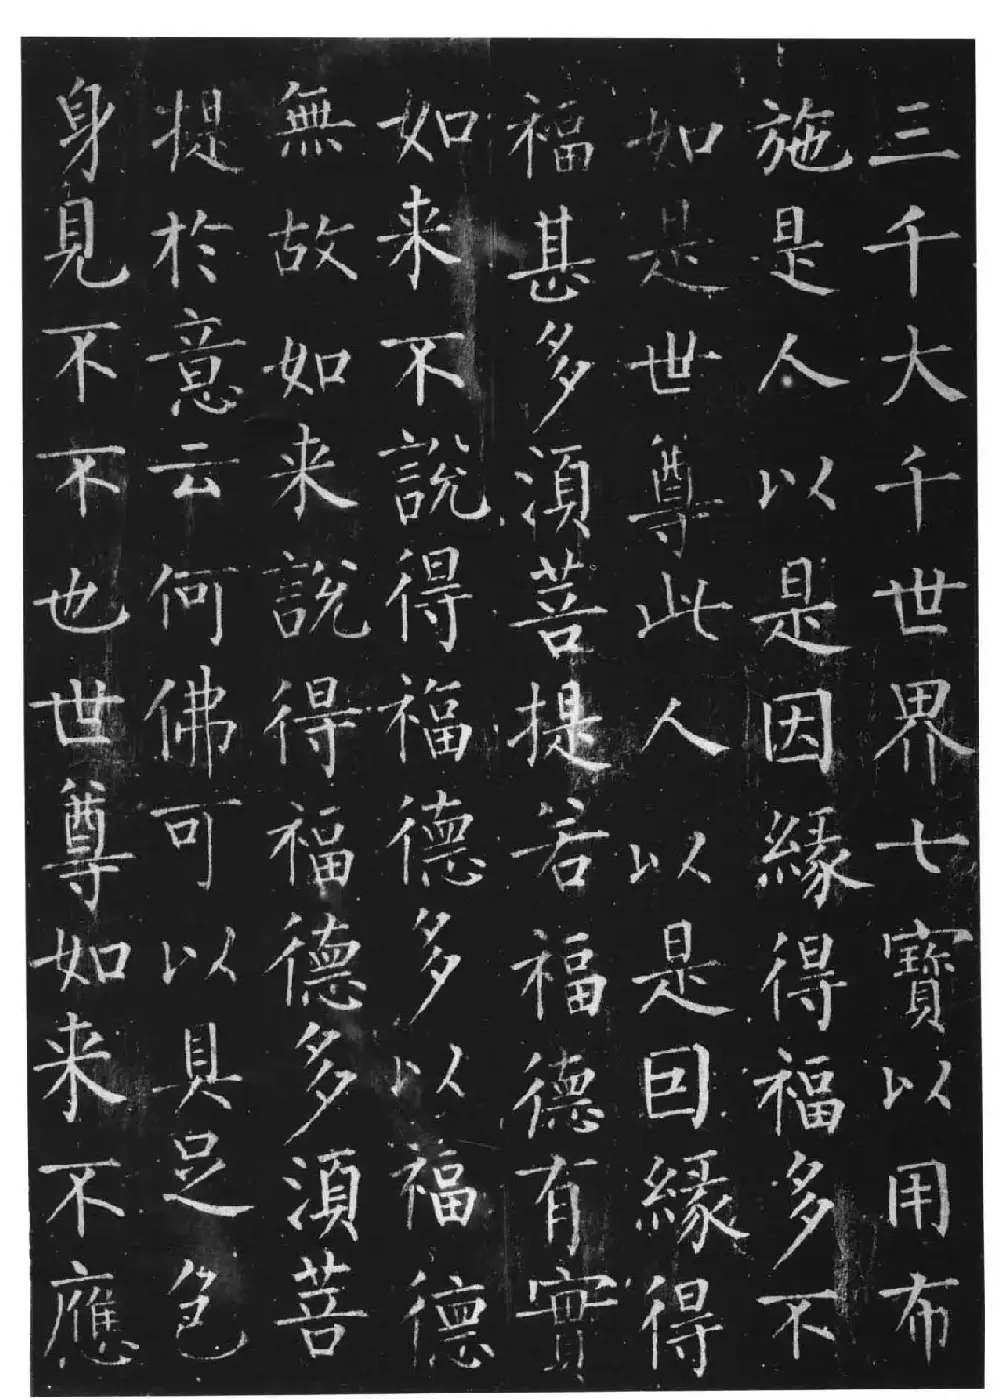 三千大千世界七寶以用布
施是人以是因緣得福多不
如是世尊此人以是因緣得
福甚多須菩提若福德有實
如来不說得福德多以福德
無故如来說得福德多須菩
提於意云何佛可以具足色
身見不不也世尊如来不應